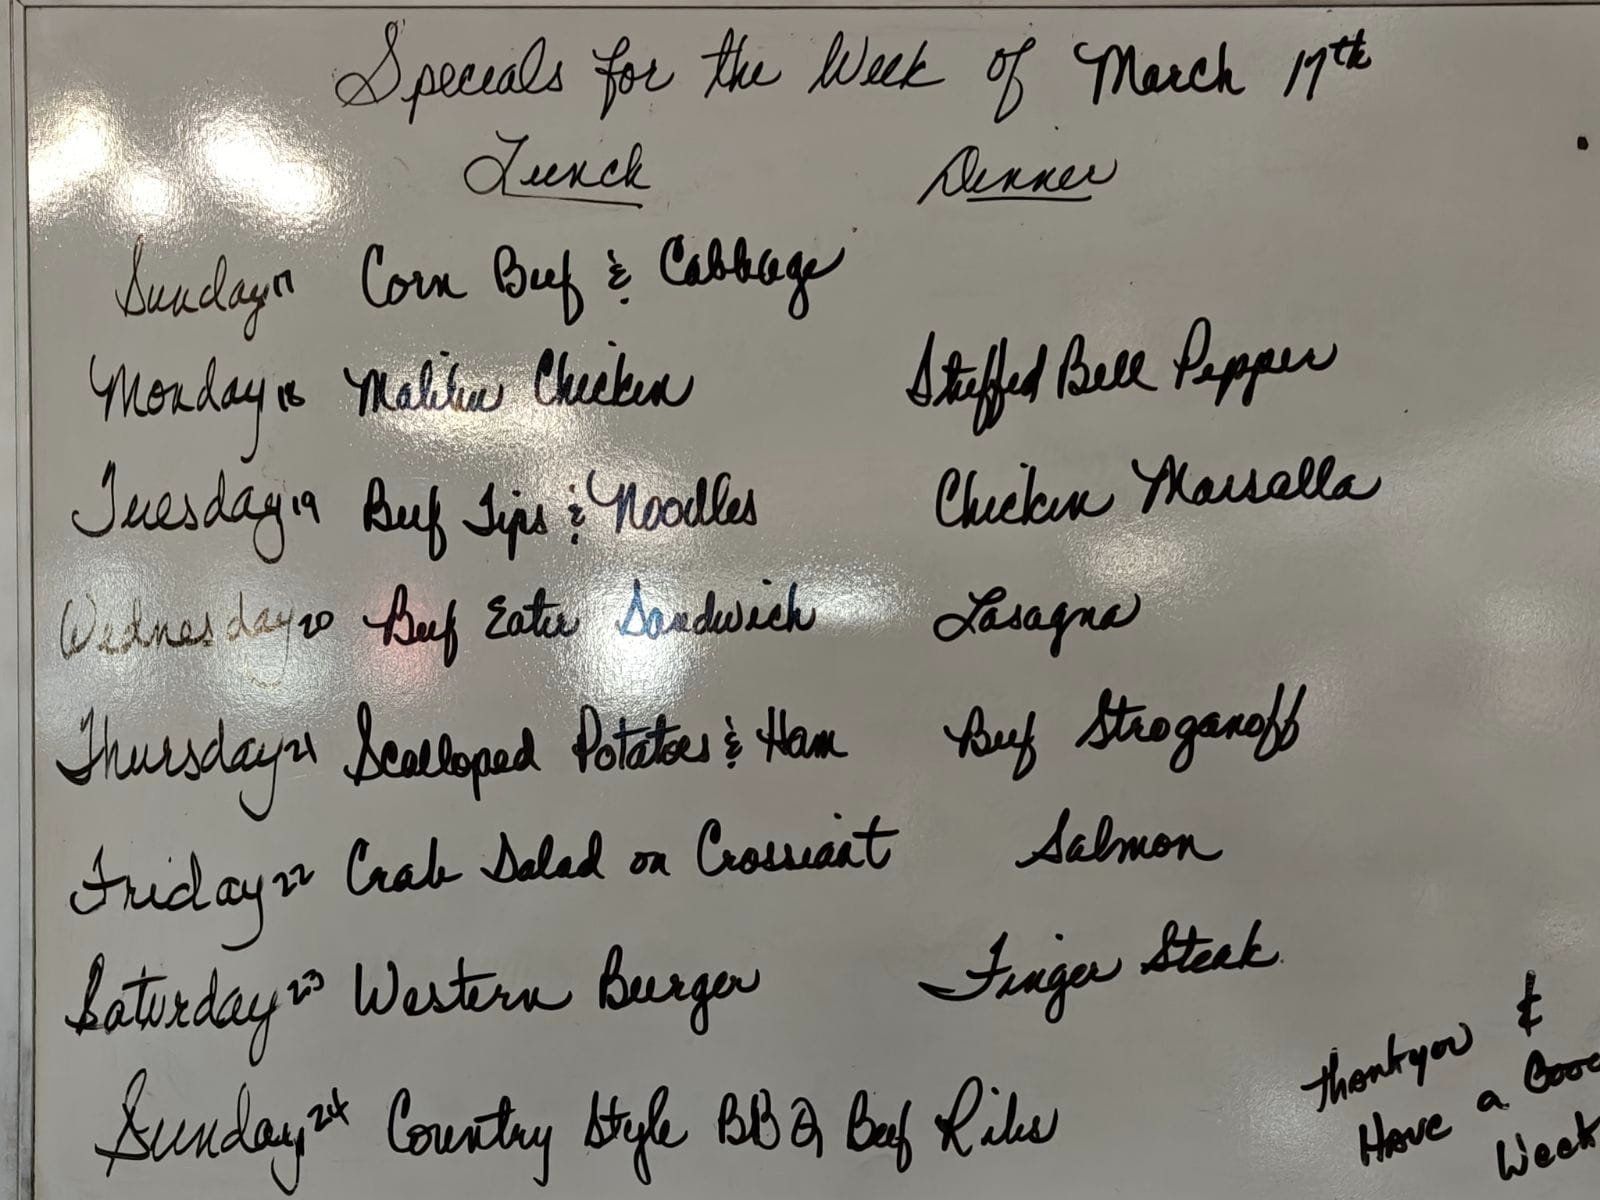 Specials for the Week of March 17th
Lunch Dinner
Sunday 17 Corn Beef & Cabbage
Monday 18 Malibu Chicken Stuffed Bell Pepper
Tuesday 19 Beef Tips & Noodles Chicken Marsalla
Wednesday 20 Beef Eater Sandwich Lasagna
Thursday 21 Scalloped Potatoes & Ham Beef Stroganoff
Friday 22 Crab Salad on Crossiant Salmon
Saturday 23 Western Burger Finger Steak
Sunday 24 Country Style BBQ Beef Ribs
Thankyou &
Have a Good
Week